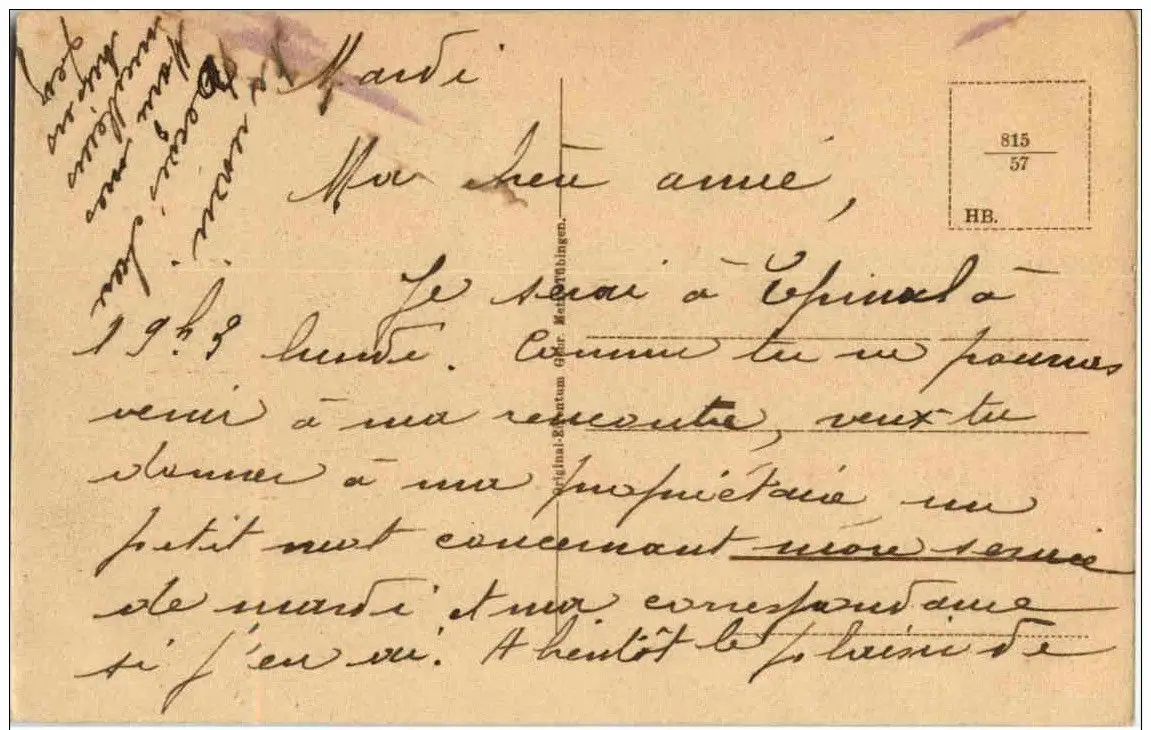 Mardi
Ma chère amie,
Je serai à Epinal à
19h3 lundi. Comme tu ne pourras
venir à ma rencontre, veux-tu
donner à ma propriétaire un
petit mot concernant mon service
de mardi et ma correspondance
si j'en ai. A bientôt le plaisir de
te voir.
815
57
HB.
Original-Eigentum Gebr. Metz, Tübingen.